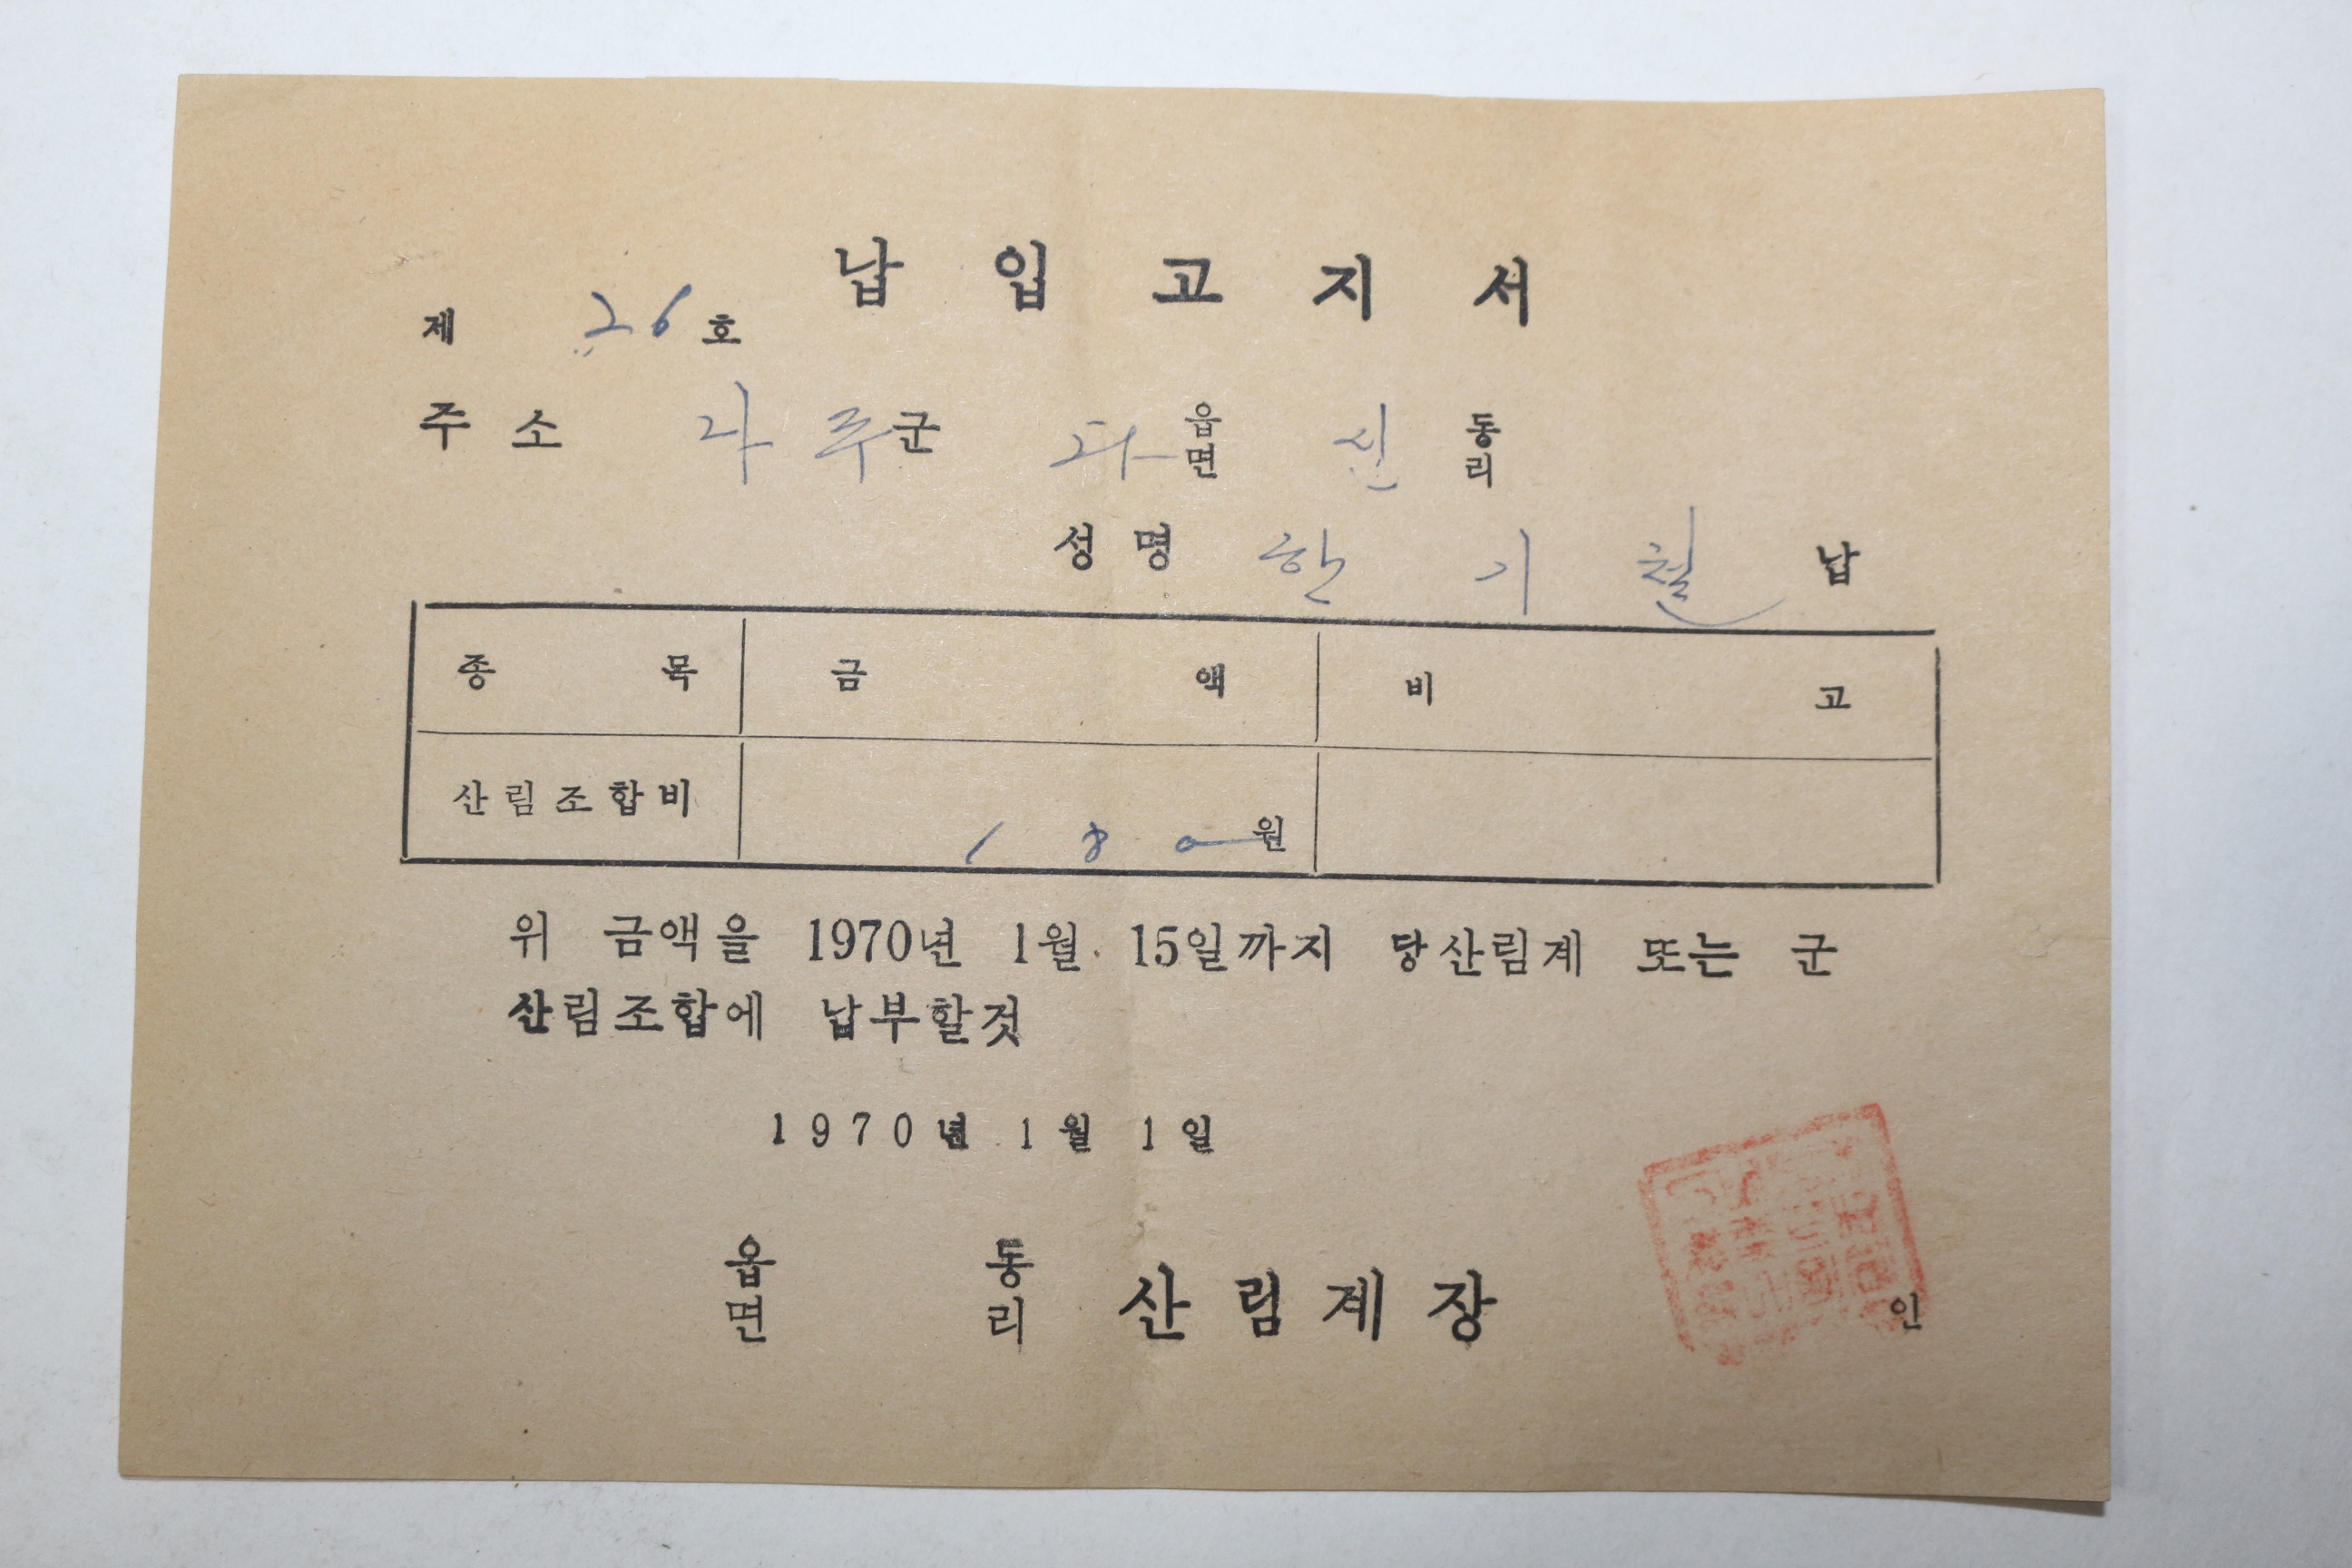 납입고지서
제 26 호
주소 파주군 파 읍면 신 동리
성명 한기철 납
종목 금액 비고
산림조합비 180원
위 금액을 1970년 1월 15일까지 당산림계 또는 군
산림조합에 납부할것
1970년 1월 1일
읍면 동리 산림계장 인